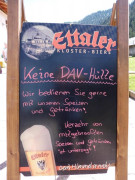 Ettaler
KLOSTER-BIERE
Keine DAV-Hütte
Wir bedienen Sie gerne
mit unseren Speisen
und Getränken!
Verzehr von
mitgebrachten
Speisen und Getränken
ist untersagt!